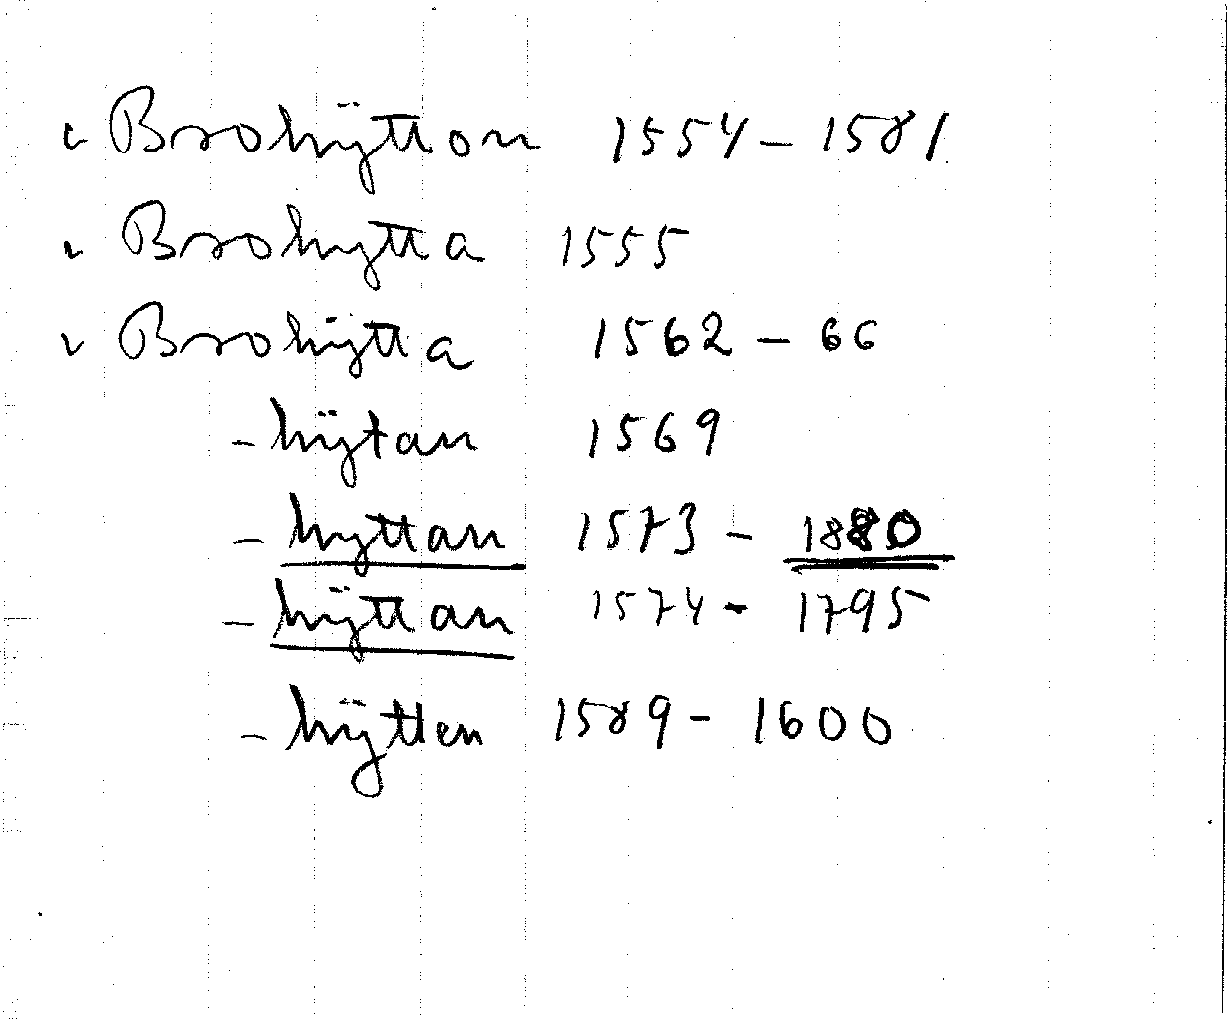 v Brohÿtton 1554 – 1581
v Brohytta 1555
v Brohÿtta 1562 – 66
- hÿtan 1569
- hyttan 1573 – 1880
- hÿttan 1574 - 1795
- hÿtten 1589 - 1600